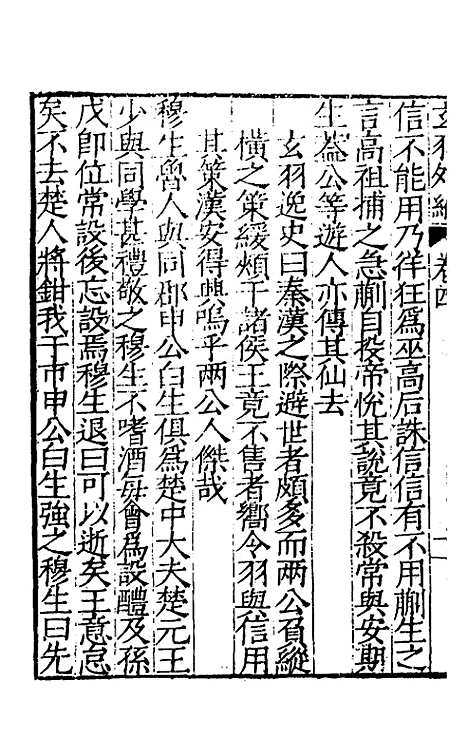 玄羽外編 卷四
信不能用乃徉狂爲巫高后誅信信有不用蒯生之
言高祖捕之急蒯自投帝悅其說竟不殺常與安期
生蓋公等遊人亦傳其仙去
玄羽逸史曰秦漢之際避世者頗多而兩公負縱
橫之策緩頰于諸侯王竟不售者嚮令羽與信用
其策漢安得興嗚乎兩公人傑哉
穆生魯人與同郡申公白生俱爲楚中大夫楚元王
少與同學甚禮敬之穆生不嗜酒毎會爲設醴及孫
戊卽位常設後忘設焉穆生退曰可以逝矣王意怠
矣不去楚人將鉗我于市申公白生強之穆生曰先